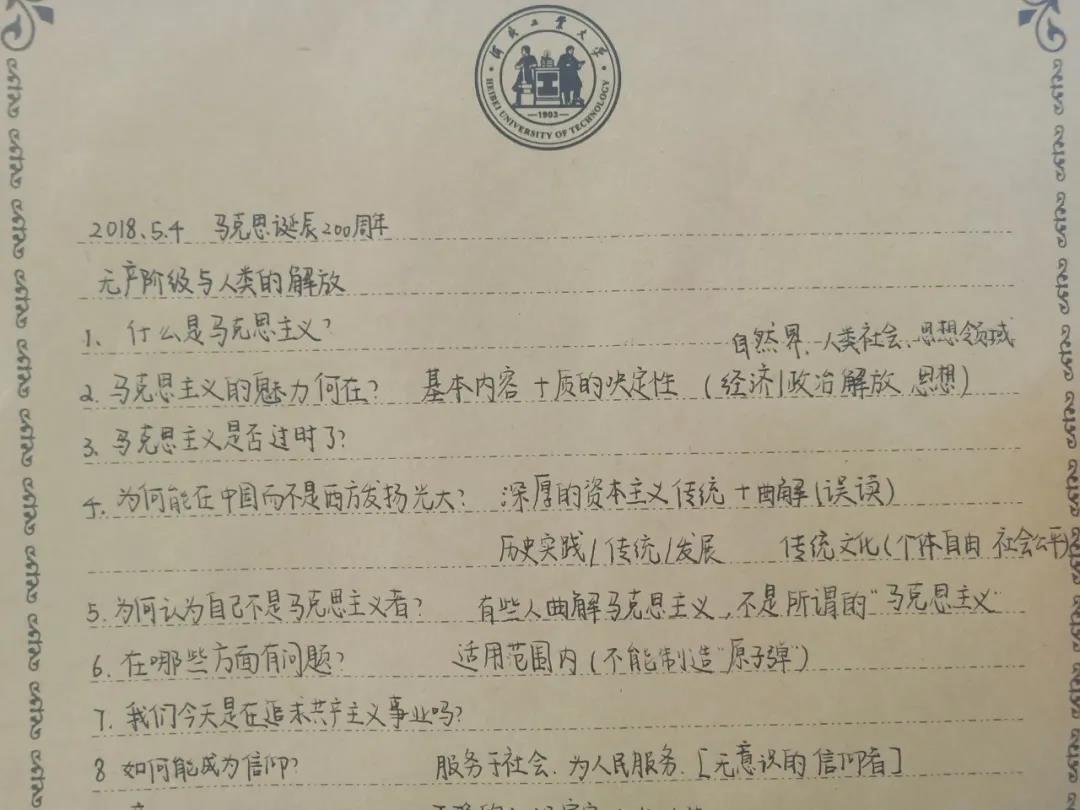 河北工业大学
HEIBEI UNIVERSITY OF TECHNOLOGY
1903
2018.5.4 马克思诞辰200周年
无产阶级与人类的解放
1. 什么是马克思主义?
自然界、人类社会、思想领域
2. 马克思主义的魅力何在? 基本内容 + 质的决定性 (经济/政治解放 思想)
3. 马克思主义是否过时了?
4. 为何能在中国而不是西方发扬光大? 深厚的资本主义传统 + 曲解(误读)
历史实践/传统/发展 传统文化(个体自由 社会公平)
5. 为何认为自己不是马克思主义者? 有些人曲解马克思主义,不是所谓的"马克思主义"
6. 在哪些方面有问题? 适用范围内(不能制造"原子弹")
7. 我们今天是在追求共产主义事业吗?
8 如何能成为信仰? 服务于社会、为人民服务. [无意识的信仰者]